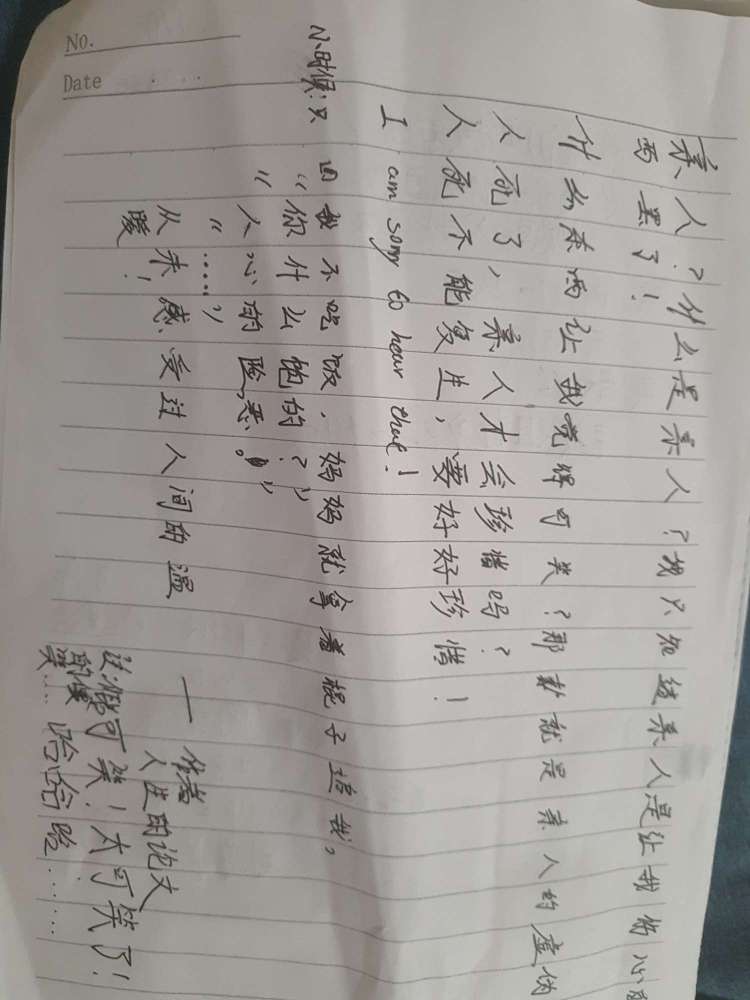 No.
Date
亲人?什么是亲人?我只知道亲人是让我的心
而累了!
什么东西让我觉得可笑?那就是亲人的虚伪
人死了,亲人才会珍惜吗?
人死不能复生,要好好珍惜!
I am sorry to hear that!
小时候:只因我不吃饭,妈妈就拿着棍子追我,
“你什么饱的?”
“人心的险恶。”
“……”
从未感受过人间的温
暖!
—作者
人生的论文
这 可笑!太可笑了!
哈哈哈……
笑……